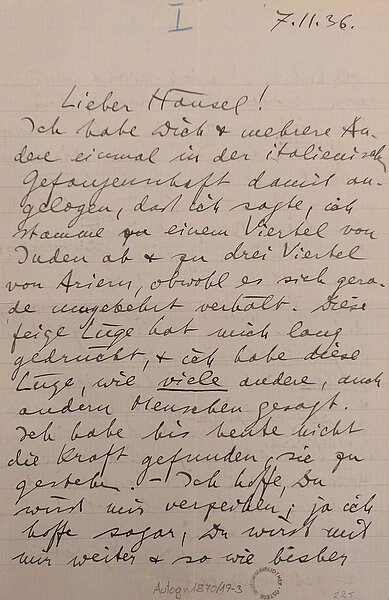 I
7.11.36.
Lieber Hänsel!
Ich habe Dich & mehrere An-
dere einmal in der italienischen
Gefangenschaft damit an-
gelogen, daß ich sagte, ich
stamme zu einem Viertel von
Juden ab & zu drei Viertel
von Ariern, obwohl es sich gera-
de umgekehrt verhält. Diese
feige Lüge hat mich lang
gedrückt, & ich habe diese
Lüge, wie viele andere, auch
andern Menschen gesagt.
Ich habe bis heute nicht
die Kraft gefunden, sie zu
gestehen. – Ich hoffe, Du
wirst mir verzeihen; ja ich
hoffe sogar, Du wirst mit
mir weiter & so wie bisher
Autogr. 1270/19-3
225